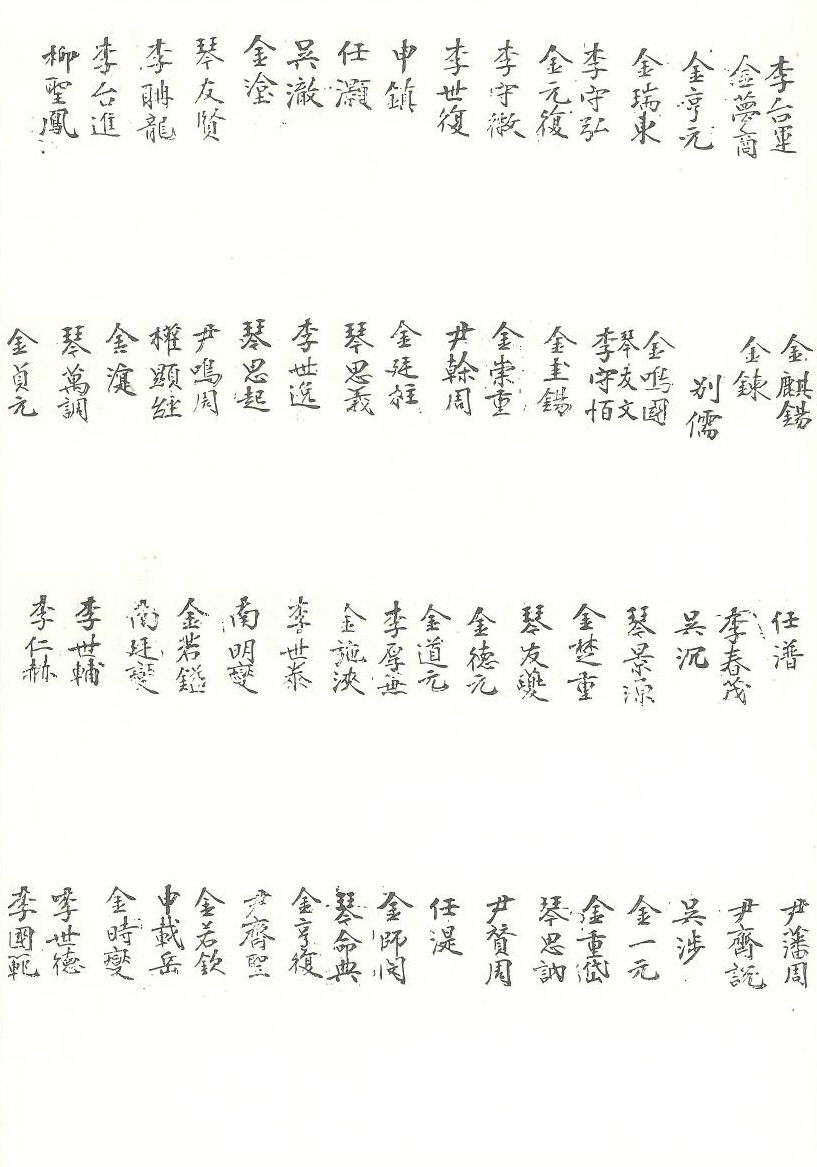 李台運
金夢商
金亨元
金瑞東
李守弘
金元復
李守徵
李世復
申鎮
任灝
吳澈
金塗
琴友賢
李聃龍
李台進
柳聖鳳
金麒錫
金鍊
別儒
金鳴國
琴友文
李守恒
金圭錫
金崇重
尹榦周
金廷雄
琴思義
李世逸
琴思起
尹鳴周
權顯經
琴萬調
金貞元
任潽
李春茂
吳沉
琴景源
金楚重
琴友夔
金德元
金道元
李厚兼
李世泰
南明夔
金若鎰
南廷夔
李世輔
李仁赫
尹藩周
尹齊說
吳涉
金一元
金重岱
琴思訥
尹贊周
任湜
金師閔
琴命典
金亨復
尹齊聖
金若欽
申載岳
金時夔
李世德
李國範